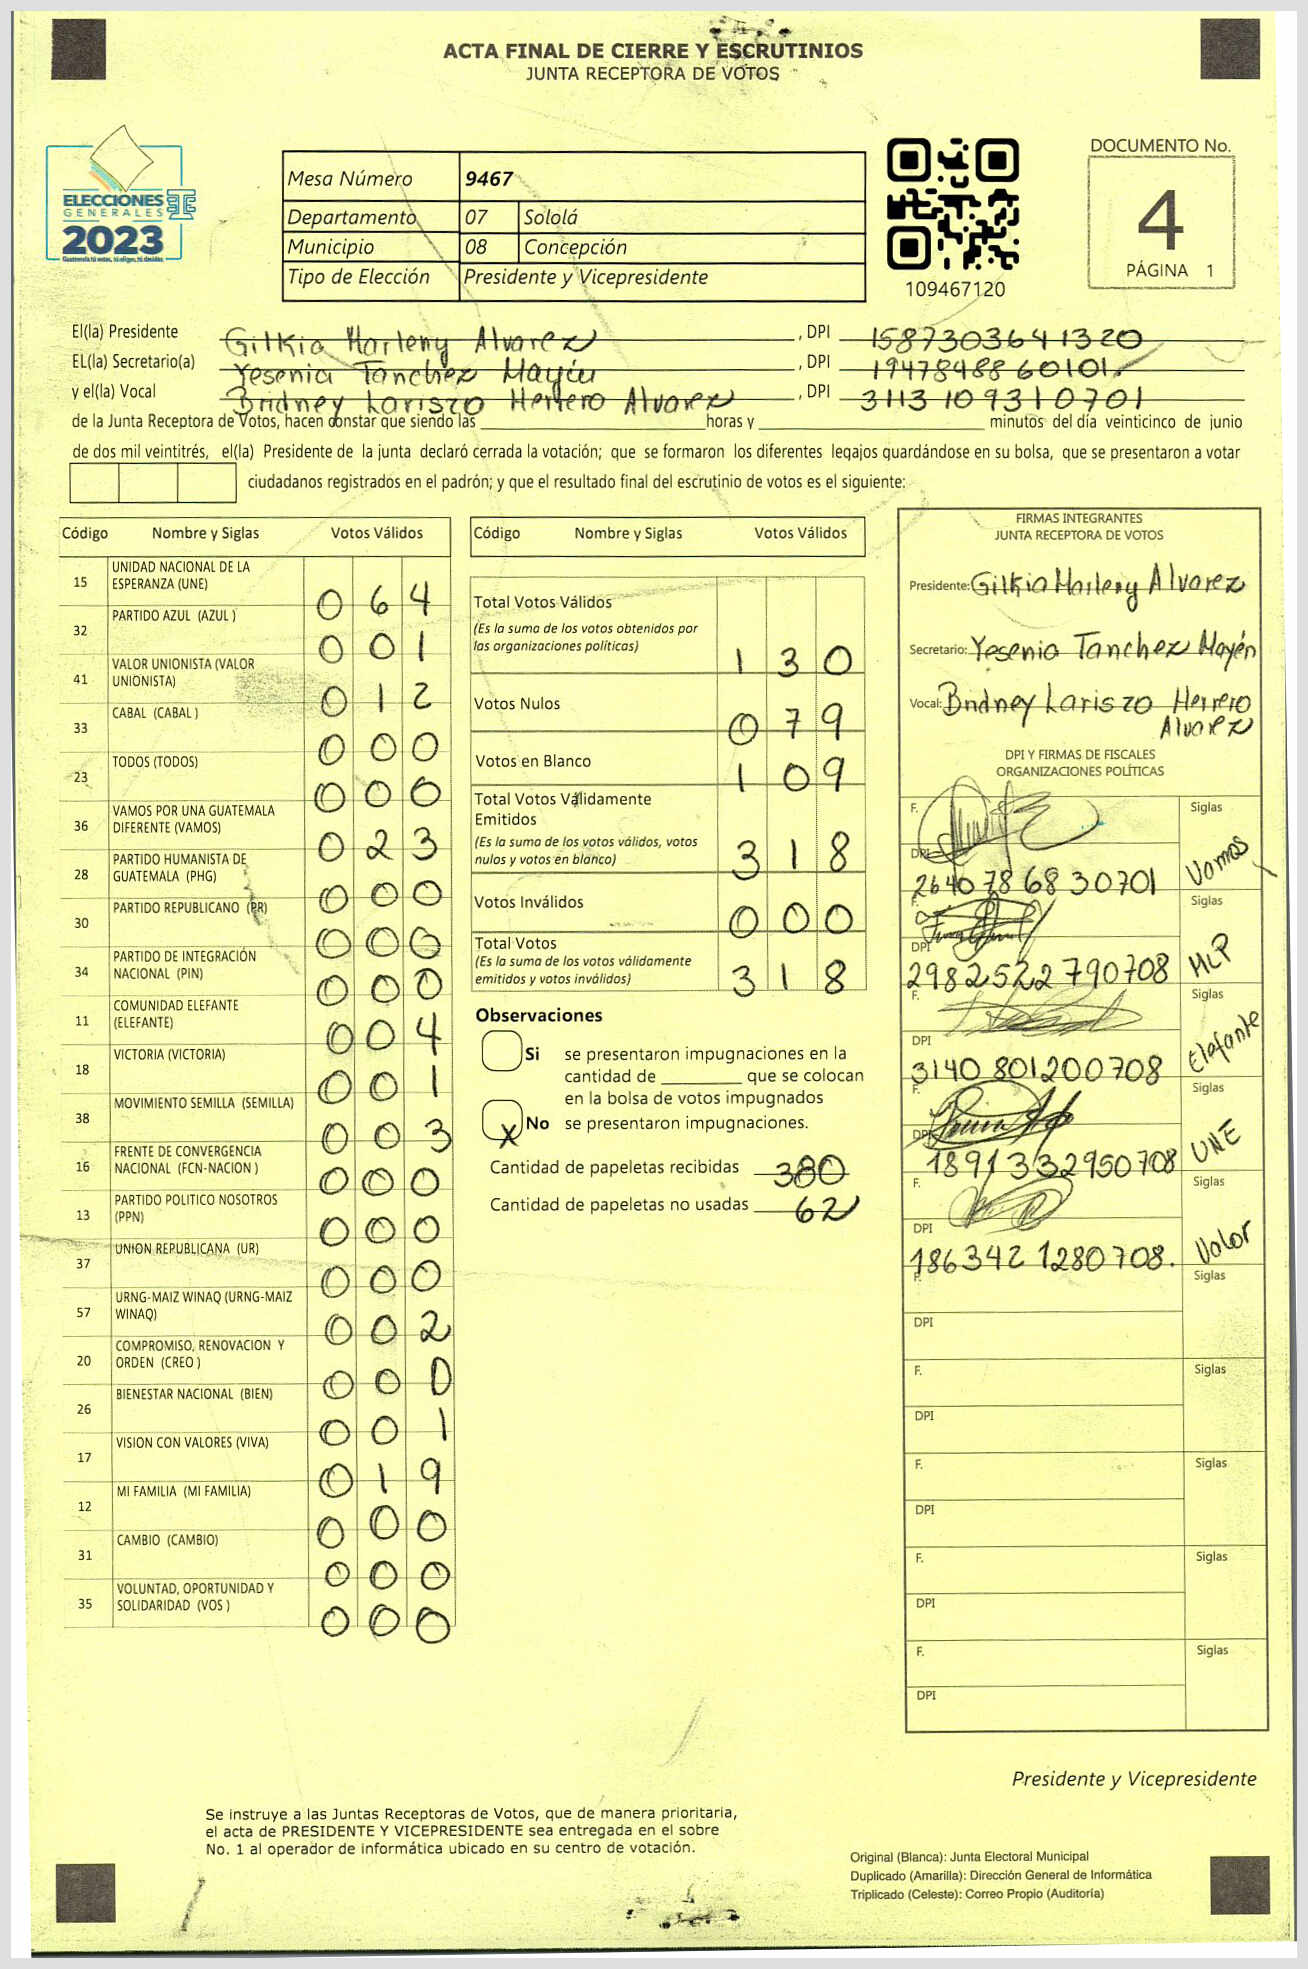 ACTA FINAL DE CIERRE Y ESCRUTINIOS
JUNTA RECEPTORA DE VOTOS
ELECCIONES
GENERALES
2023
Guatemala tú votas, tú eliges, tú decides
Mesa Número 9467
Departamento 07 Sololá
Municipio 08 Concepción
Tipo de Elección Presidente y Vicepresidente
109467120
DOCUMENTO No.
4
PÁGINA 1
El(la) Presidente Gilkia Marleny Alvarez, DPI 1587303641320
EL(la) Secretario(a) Yesenia Tanchez Mayén, DPI 1947848860101
y el(la) Vocal Bridney Larisza Herrera Alvarez, DPI 3113109310701
de la Junta Receptora de Votos, hacen constar que siendo las ____ horas y ____ minutos del día veinticinco de junio
de dos mil veintitrés, el(la) Presidente de la junta declaró cerrada la votación; que se formaron los diferentes legajos guardándose en su bolsa, que se presentaron a votar
ciudadanos registrados en el padrón; y que el resultado final del escrutinio de votos es el siguiente:
Código Nombre y Siglas Votos Válidos
15 UNIDAD NACIONAL DE LA ESPERANZA (UNE) 064
32 PARTIDO AZUL (AZUL ) 001
41 VALOR UNIONISTA (VALOR UNIONISTA) 012
33 CABAL (CABAL ) 000
23 TODOS (TODOS) 000
36 VAMOS POR UNA GUATEMALA DIFERENTE (VAMOS) 023
28 PARTIDO HUMANISTA DE GUATEMALA (PHG) 000
30 PARTIDO REPUBLICANO (PR) 000
34 PARTIDO DE INTEGRACIÓN NACIONAL (PIN) 000
11 COMUNIDAD ELEFANTE (ELEFANTE) 004
18 VICTORIA (VICTORIA) 001
38 MOVIMIENTO SEMILLA (SEMILLA) 003
16 FRENTE DE CONVERGENCIA NACIONAL (FCN-NACION ) 000
13 PARTIDO POLITICO NOSOTROS (PPN) 000
37 UNION REPUBLICANA (UR) 000
57 URNG-MAIZ WINAQ (URNG-MAIZ WINAQ) 002
20 COMPROMISO, RENOVACION Y ORDEN (CREO ) 000
26 BIENESTAR NACIONAL (BIEN) 001
17 VISION CON VALORES (VIVA) 019
12 MI FAMILIA (MI FAMILIA) 000
31 CAMBIO (CAMBIO) 000
35 VOLUNTAD, OPORTUNIDAD Y SOLIDARIDAD (VOS ) 000
Código Nombre y Siglas Votos Válidos
Total Votos Válidos
(Es la suma de los votos obtenidos por
las organizaciones políticas) 130
Votos Nulos 079
Votos en Blanco 109
Total Votos Válidamente
Emitidos
(Es la suma de los votos válidos, votos
nulos y votos en blanco) 318
Votos Inválidos 000
Total Votos
(Es la suma de los votos válidamente
emitidos y votos inválidos) 318
Observaciones
Si se presentaron impugnaciones en la
cantidad de ____ que se colocan
en la bolsa de votos impugnados
X No se presentaron impugnaciones.
Cantidad de papeletas recibidas 380
Cantidad de papeletas no usadas 62
FIRMAS INTEGRANTES
JUNTA RECEPTORA DE VOTOS
Presidente: Gilkia Marleny Alvarez
Secretario: Yesenia Tanchez Mayén
Vocal: Bridney Larisza Herrera
Alvarez
DPI Y FIRMAS DE FISCALES
ORGANIZACIONES POLÍTICAS
F. Siglas
DPI 2640786830701 Vamos
F. Siglas
DPI 2982522790708 MLP
F. Siglas
DPI 3140801200708 Elefante
F. Siglas
DPI 1891332950708 UNE
F. Siglas
DPI 1863421280708. Valor
F. Siglas
DPI
F. Siglas
DPI
F. Siglas
DPI
F. Siglas
DPI
F. Siglas
DPI
Presidente y Vicepresidente
Se instruye a las Juntas Receptoras de Votos, que de manera prioritaria,
el acta de PRESIDENTE Y VICEPRESIDENTE sea entregada en el sobre
No. 1 al operador de informática ubicado en su centro de votación.
Original (Blanca): Junta Electoral Municipal
Duplicado (Amarilla): Dirección General de Informática
Triplicado (Celeste): Correo Propio (Auditoría)